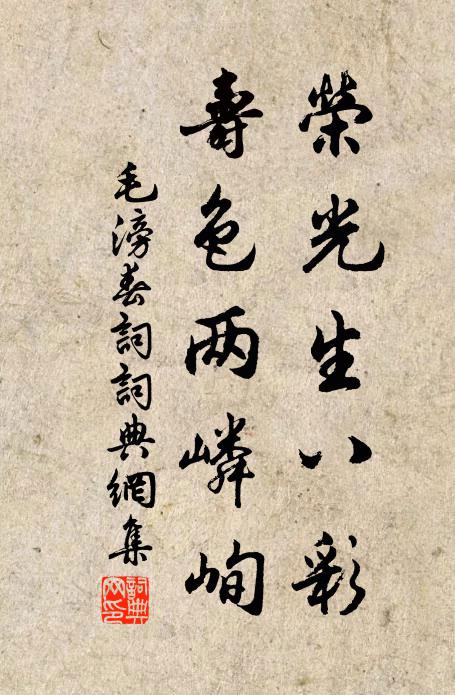 榮光生八彩
壽色两嶙峋
毛滂春詞詞典網集
詞典網印